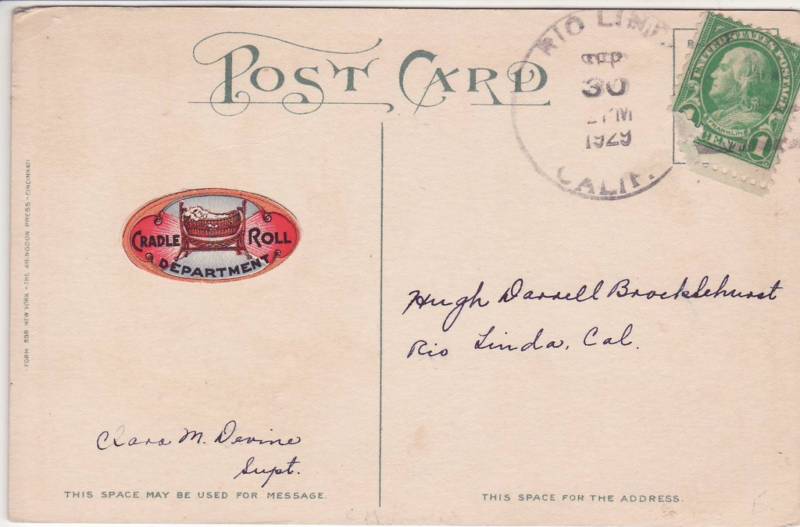 POST CARD
RIO LIN
30
PM
1929
CALIF.
UNITED STATES POSTAGE
FRANKLIN
1 CENT 1
CRADLE ROLL
DEPARTMENT
FORM 838 NEW YORK - THE ABINGDON PRESS - CINCINNATI
Hugh Darrell Brocklehurst
Rio Linda, Cal.
Clara M. Devine
Supt.
THIS SPACE MAY BE USED FOR MESSAGE.
THIS SPACE FOR THE ADDRESS.